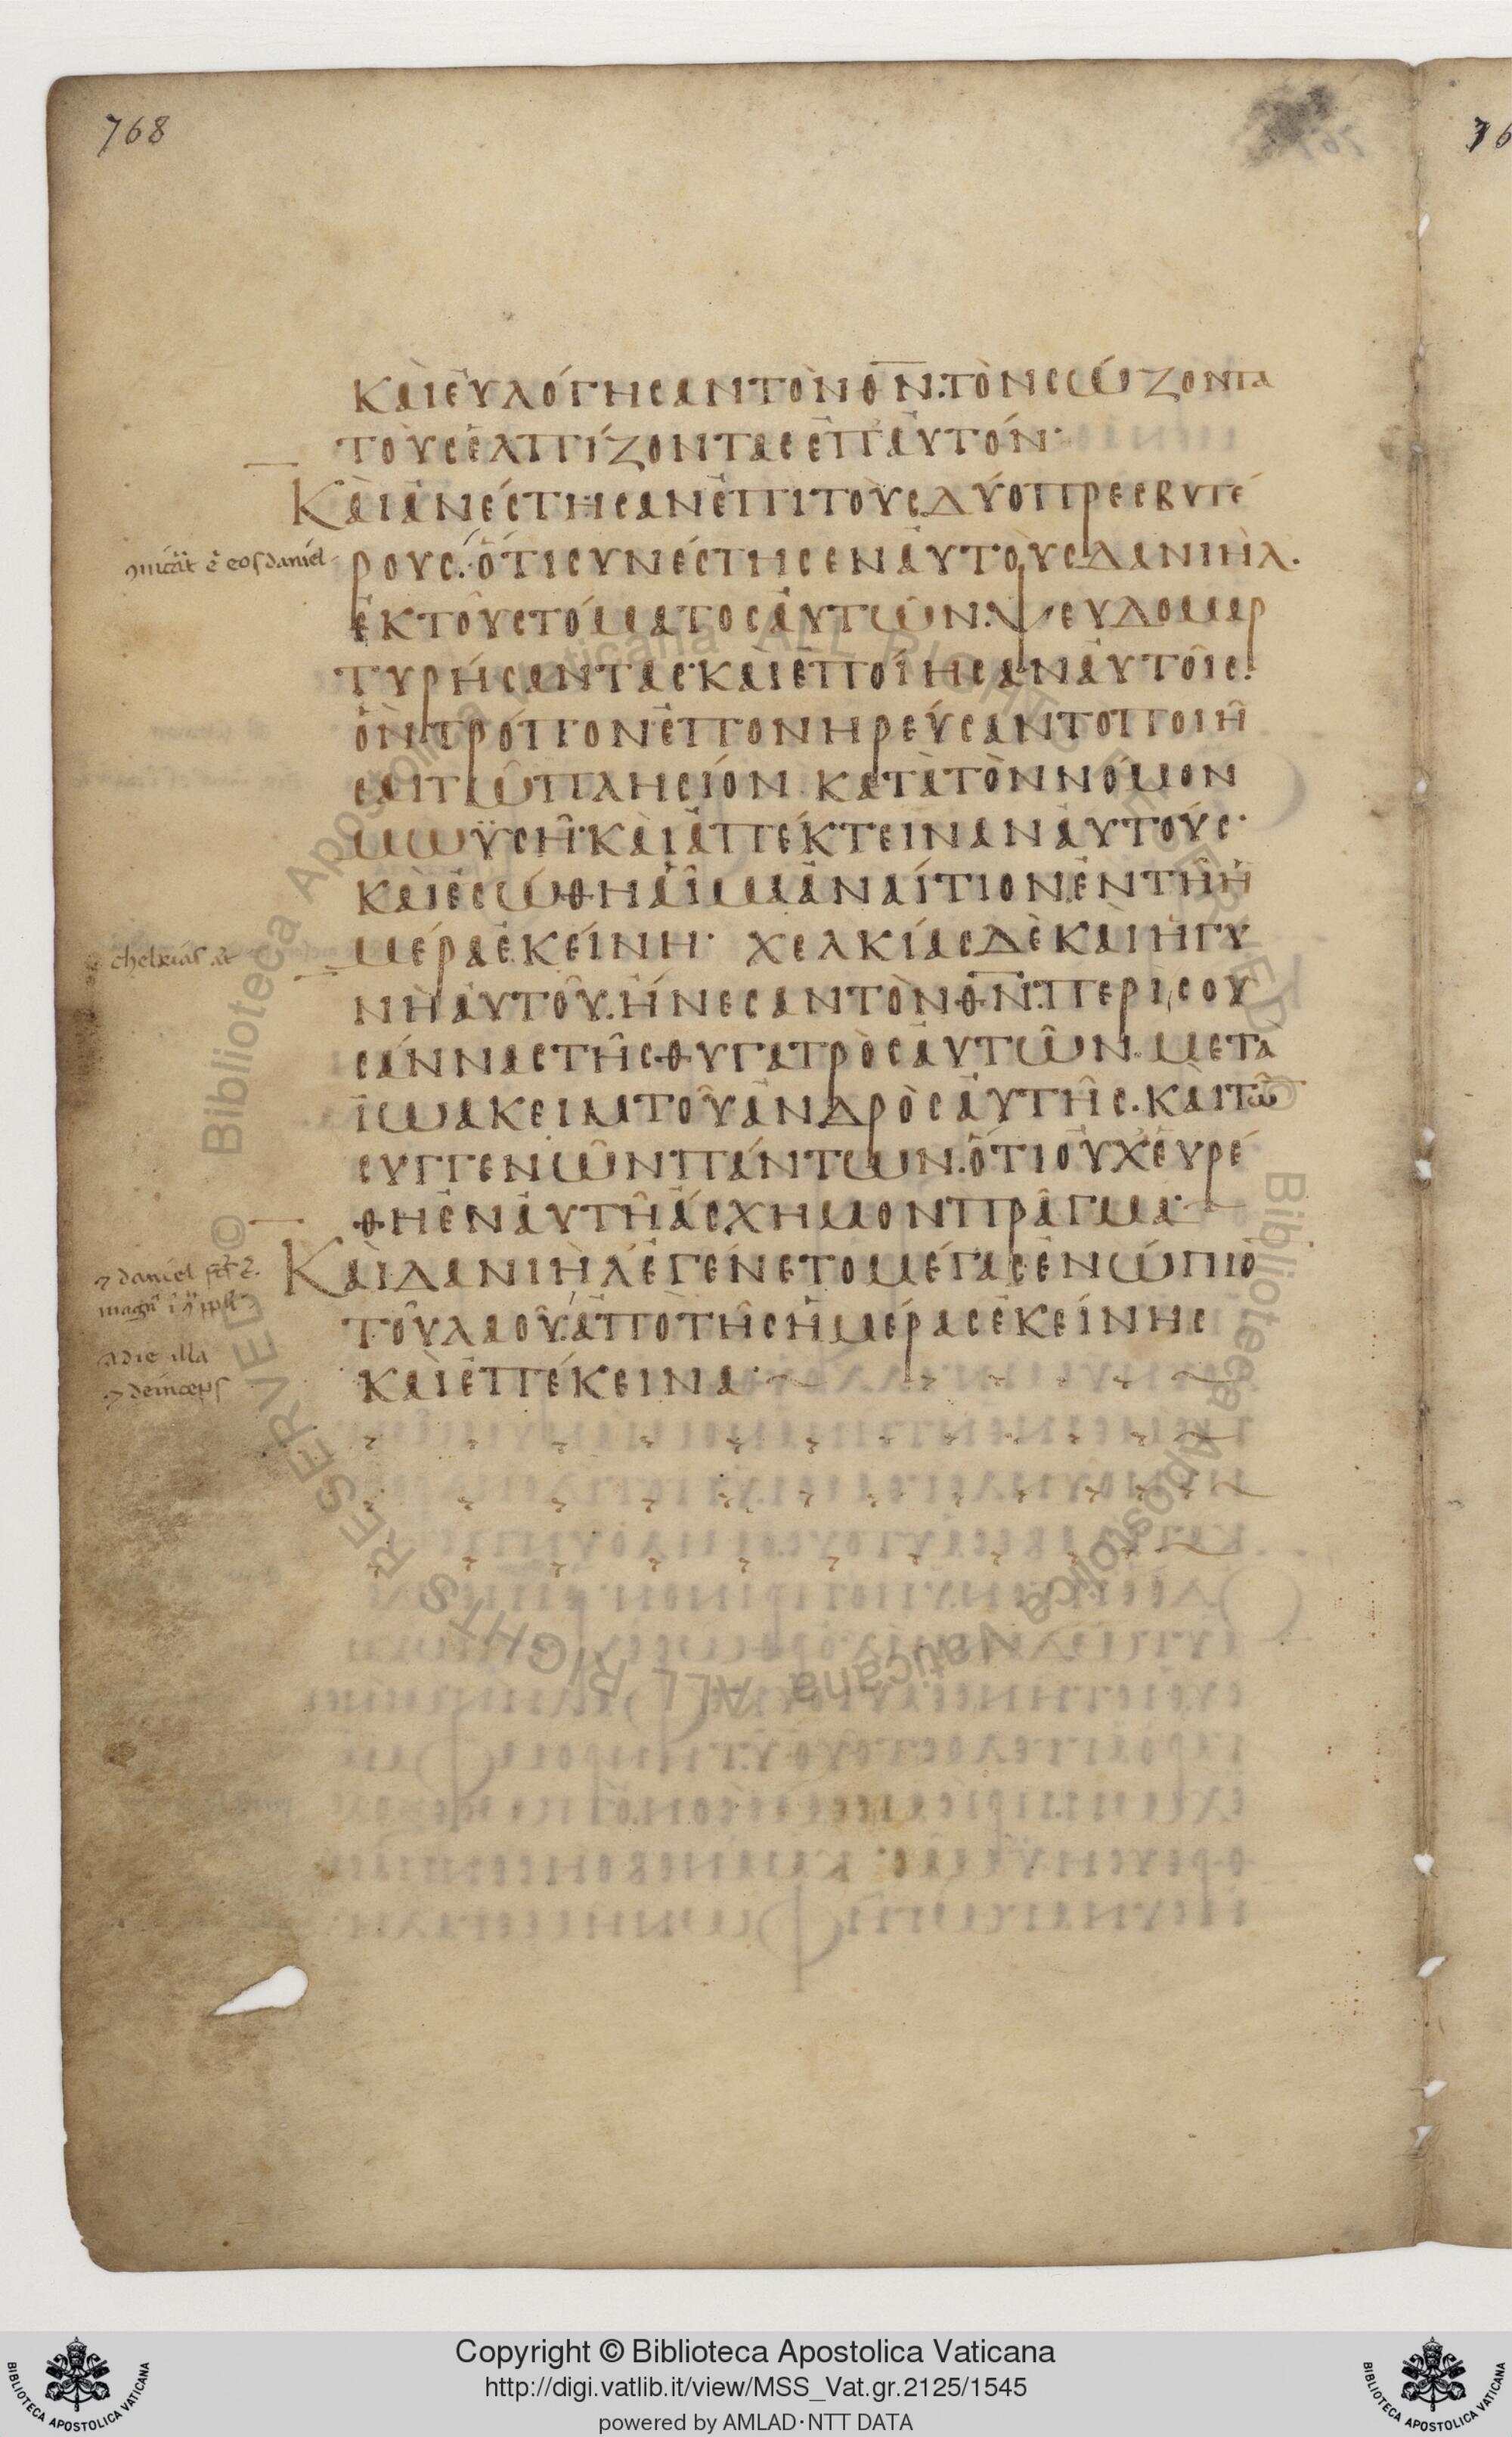 768
ΚΑῚΕΥ̓ΛΌΓΗϹΑΝΤῸΝΘ̅Ν̅.ΤῸΝϹΏΖΟΝΤΑ
ΤΟῪϹἘΛΠΊΖΟΝΤΑϹἘΠ᾽ΑΥ̓ΤΌΝ·
ΚΑῚἈΝΈϹΤΗϹΑΝἘΠῚΤΟῪϹΔΎΟΠΡΕϹΒΥΤΈ
ΡΟΥϹ.ὍΤΙϹΥΝΈϹΤΗϹΕΝΑΥ̓ΤΟῪϹΔΑΝΙῊΛ.
ἘΚΤΟΥ͂ϹΤΌΜΑΤΟϹΑΥ̓ΤΩ͂Ν.ΨΕΥΔΟΜΑΡ
ΤΥΡΉϹΑΝΤΑϹ·ΚΑῚἘΠΟΊΗϹΑΝΑΥ̓ΤΟΙ͂Ϲ.
ὋΝΤΡΌΠΟΝἘΠΟΝΗΡΕΎϹΑΝΤΟΠΟΙΗ͂
ϹΑΙΤΩ͂ΠΛΗϹΊΟΝ ΚΑΤᾺΤῸΝΝΌΜΟΝ
ΜΩΫϹΗ͂·ΚΑῚἈΠΈΚΤΕΙΝΑΝΑΥ̓ΤΟΎϹ·
ΚΑῚἘϹΏΘΗΑΙ͂ΜΑἈΝΑΊΤΙΟΝἘΝΤΗ͂Ἡ
ΜΈΡΑἘΚΕΊΝΗ· ΧΕΛΚΊΑϹΔῈΚΑῚἩΓΥ
ΝῊΑΥ̓ΤΟΥ͂.ἬΝΕϹΑΝΤῸΝΘ̅Ν̅.ΠΕΡῚϹΟΥ
ϹΆΝΝΑϹΤΗ͂ϹΘΥΓΑΤΡῸϹΑΥ̓ΤΩ͂Ν.ΜΕΤᾺ
ΪΩΑΚΕΙΜΤΟΥ͂ἈΝΔΡῸϹΑΥ̓ΤΗ͂Ϲ.ΚΑῚΤΩ͂
ϹΥΓΓΕΝΩ͂ΝΠΆΝΤΩΝ.ὍΤΙΟΥ̓ΧΕΥΡΈ
ΘΗἘΝΑΥ̓ΤΗ͂ἌϹΧΗΜΟΝΠΡΑ͂ΓΜΑ·
ΚΑῚΔΑΝΙῊΛἘΓΈΝΕΤΟΜΈΓΑϹἘΝΏΠΙΟ
ΤΟΥ͂ΛΑΟΥ͂.ἈΠῸΤΗ͂ϹἩΜΈΡΑϹἘΚΕΊΝΗϹ
ΚΑῚἘΠΈΚΕΙΝΑ·
chelkias
adie illa
Copyright © Biblioteca Apostolica Vaticana
http://digi.vatlib.it/view/MSS_Vat.gr.2125/1545
powered by AMLAD·NTT DATA
BIBLIOTECA APOSTOLICA VATICANA
BIBLIOTECA APOSTOLICA VATICANA
© Biblioteca Apostolica Vaticana ALL RIGHTS RESERVED
© Biblioteca Apostolica Vaticana ALL RIGHTS RESERVED